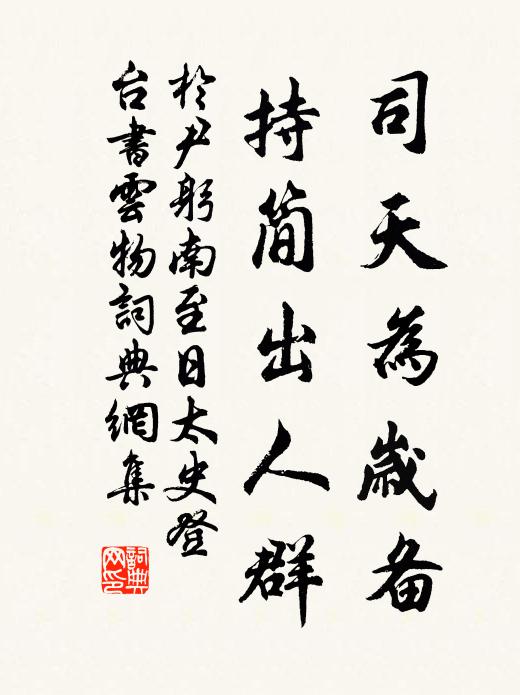 司天為歲备
持簡出人群
於尹躬南至日太史登
台書雲物詞典網集
詞典网印